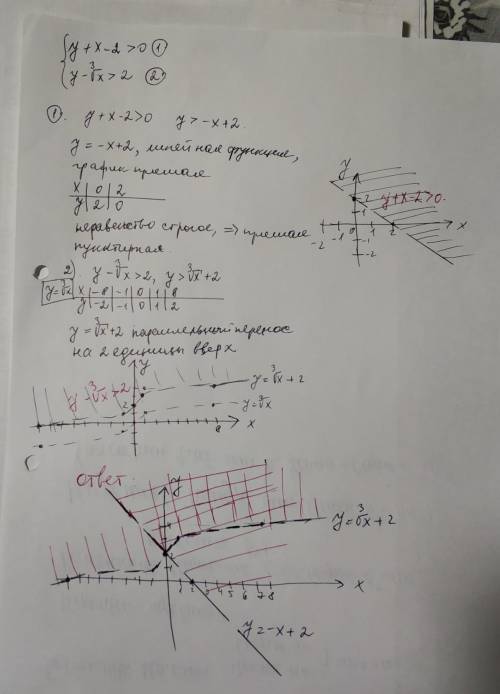 { y+x-2>0 ①
{ y-∛x>2 ②
①. y+x-2>0 y>-x+2.
y=-x+2, линейная функция,
график прямая
x | 0 | 2
y | 2 | 0
неравенство строгое, => прямая
пунктирная.
y
2
1
y+x-2>0.
-2 -1 0 1 2 x
-1
-2
2) y-∛x>2, y>∛x+2
y=∛x x | -8 | -1 | 0 | 1 | 8
y | -2 | -1 | 0 | 1 | 2
y=∛x+2 параллельный перенос
на 2 единицы вверх
y
y-∛x>2
y=∛x+2
2
y=∛x
8 x
ответ:
y
y=∛x+2
1 2 3 4 5 6 7 8 x
y=-x+2